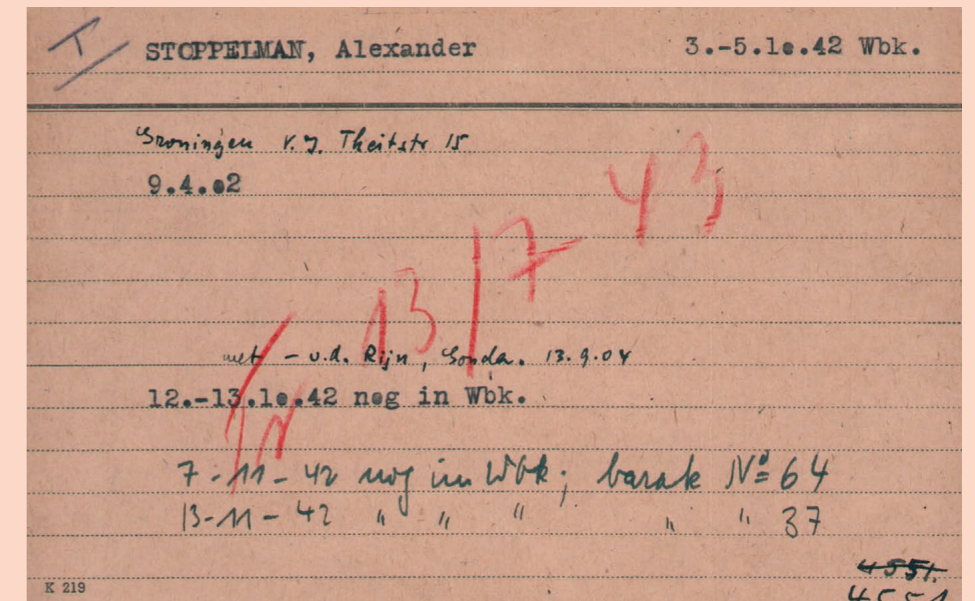 I STOPPELMAN, Alexander 3.-5.10.42 Wbk.
Groningen v.J. Theitstr 15
9.4.02
met - v.d. Rijn, Gonda. 13.9.04
12.-13.10.42 nog in Wbk.
Tr 13/7 43
7-11-42 nog in Wbk; barak No 64
13-11-42 " " " " " 37
4551.
K 219
4551